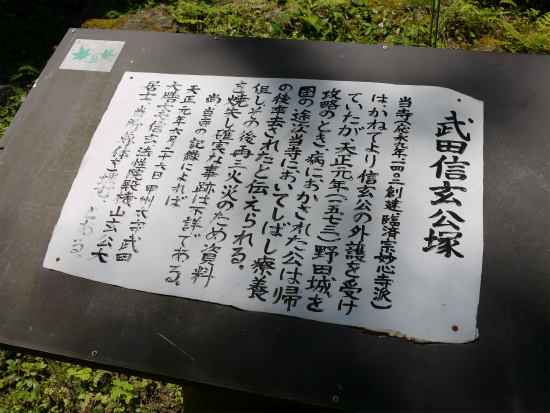 武田信玄公塚
当寺(応永九年一四〇二創建臨済宗妙心寺派)
は、かねてより信玄公の外護を受け
ていたが天正元年(一五七三)野田城を
攻略のとき、病におかされた公は帰
国の途次当寺においてしばし療養
の後卒去されたと伝えられる。
但しその後再三火災のため資料
を焼失し確実な事跡は下詳である。
尚当寺の記録によれば
天正元年六月二十六日甲州太守武田
大僧大夫信玄法性院殿機山玄公大
居士 当所
とある。